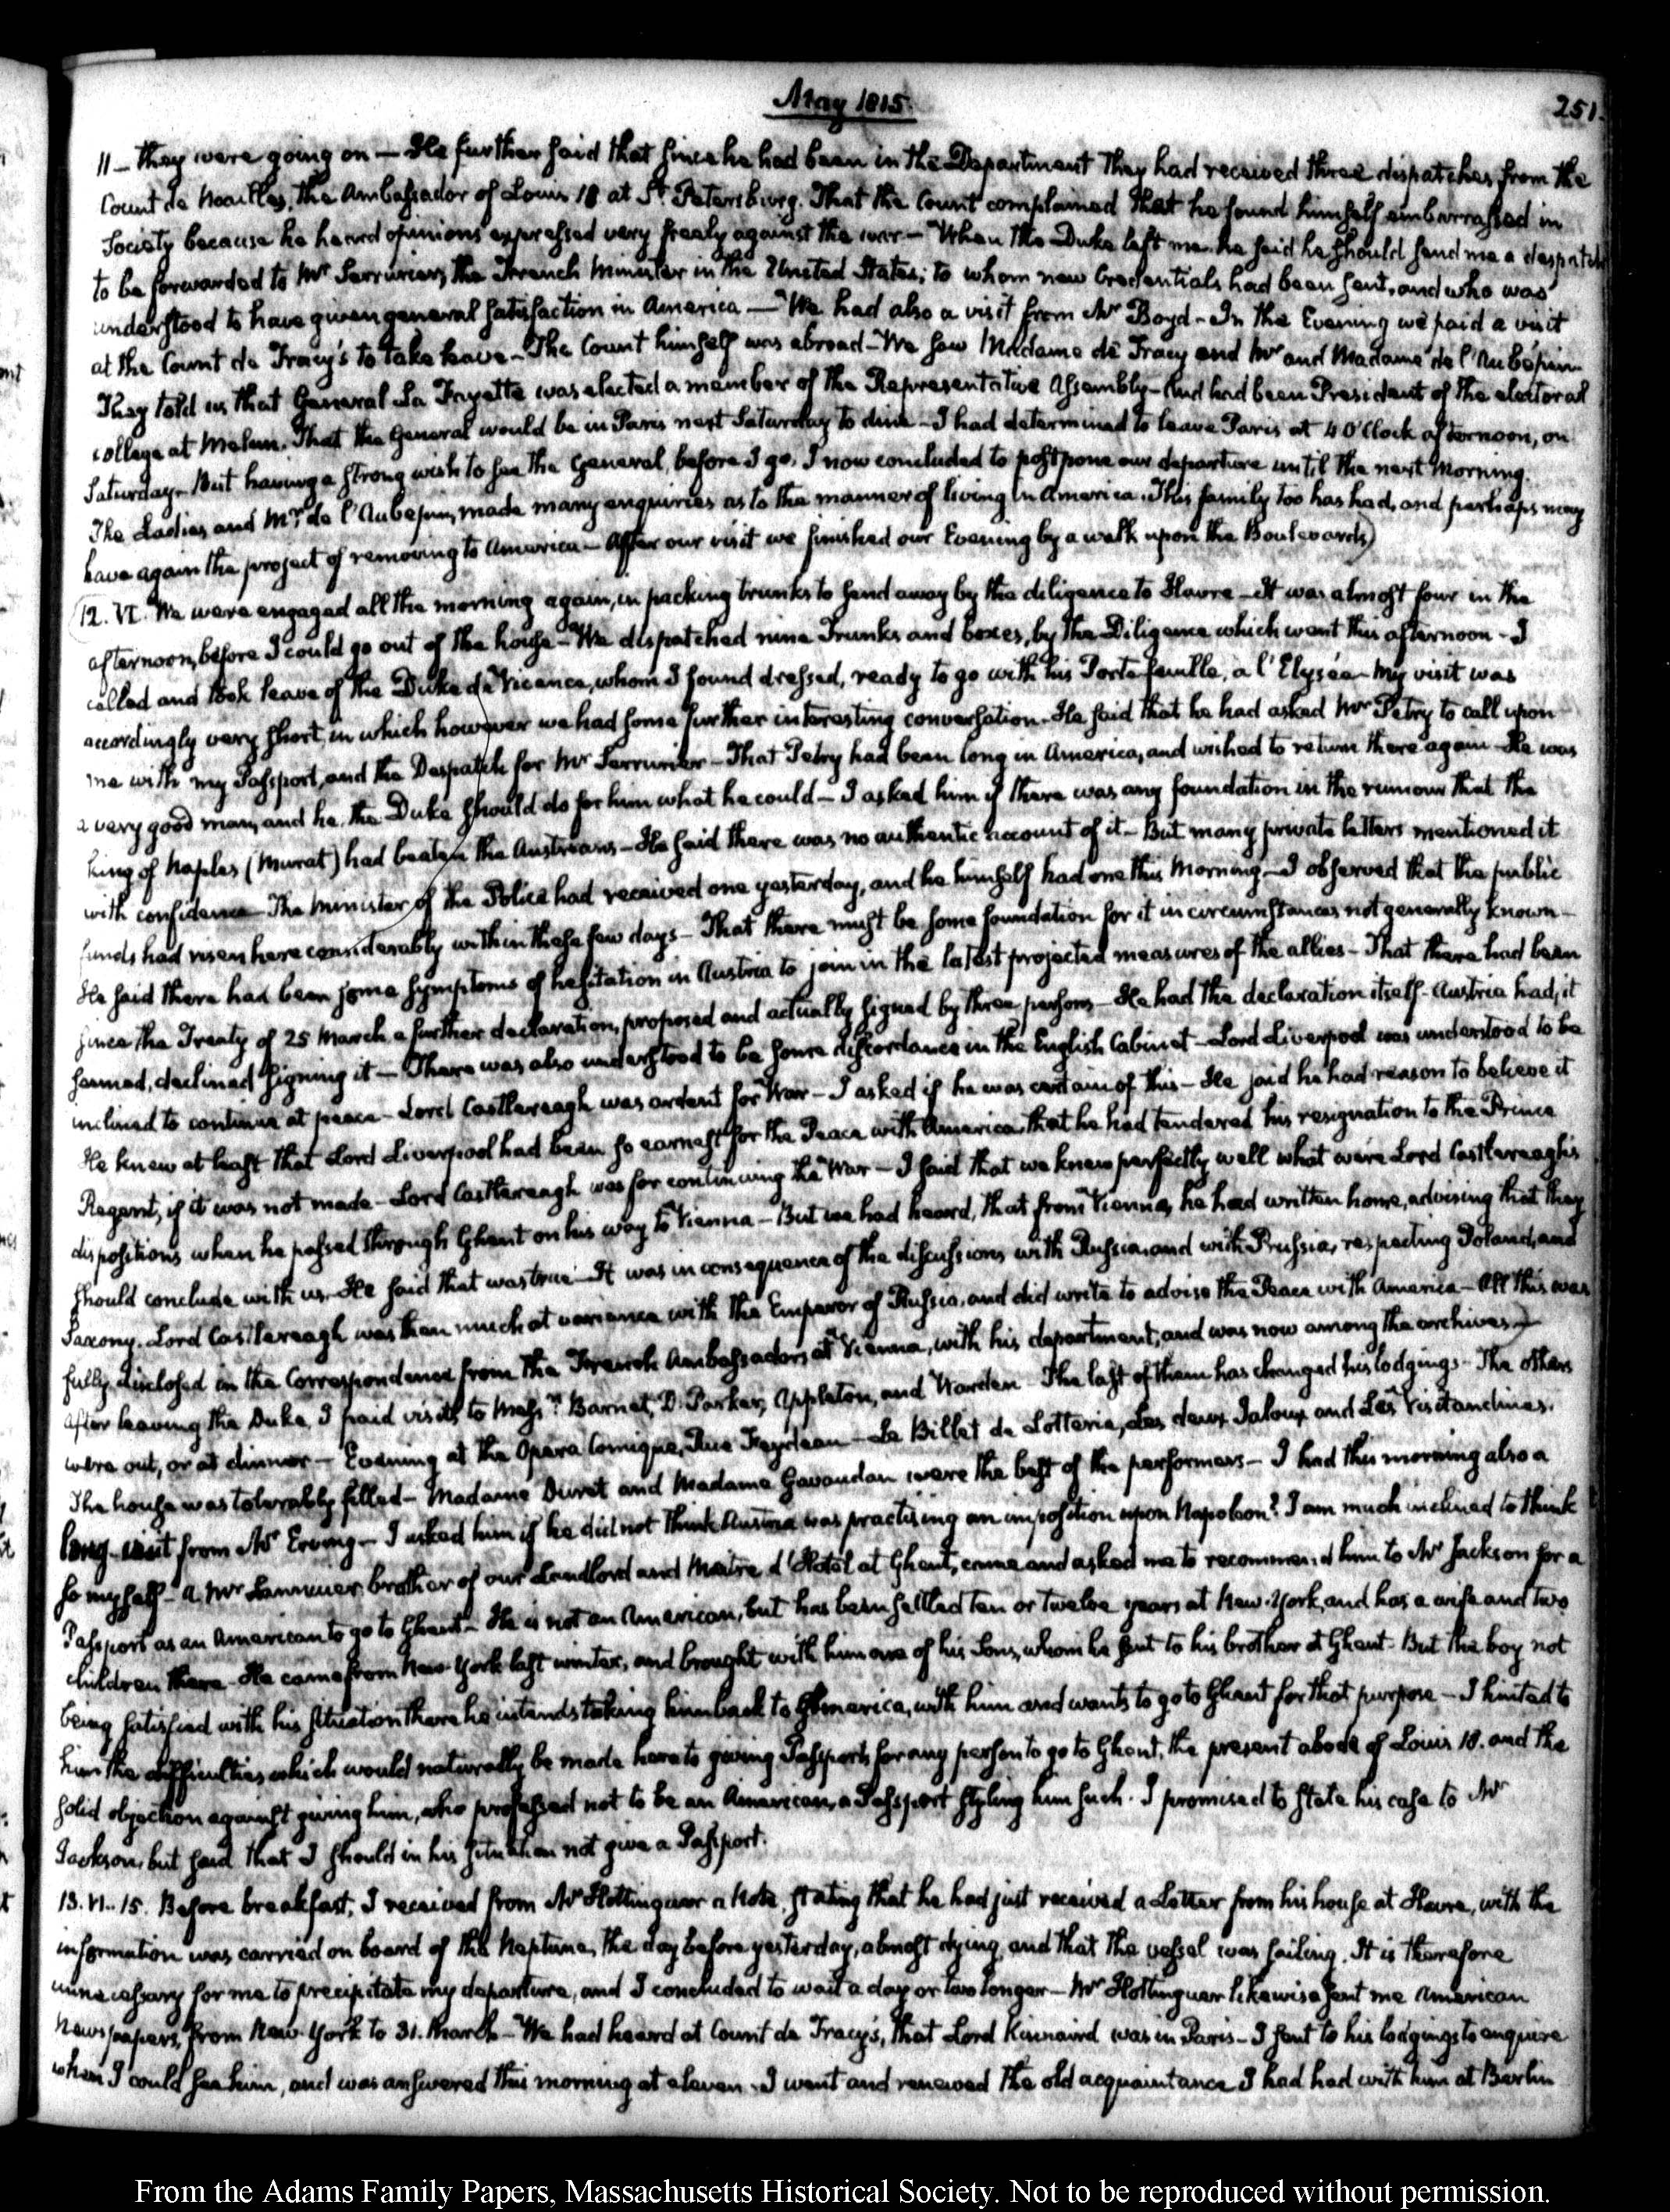 May 1815.
251.
11 — they were going on — He further said that since he had been in the Department they had received three dispatches from the
Count de Noailles, the Ambassador of Louis 18 at St. Petersburg. That the Count complained that he found himself embarrassed in
Society because he heard opinions expressed very freely against the war — When the Duke left me he said he should send me a despatch
to be forwarded to Mr Serrurier, the French Minister in the United States; to whom new Credentials had been sent, and who was
understood to have given general satisfaction in America — We had also a visit from Mr Boyd — In the Evening we paid a visit
at the Count de Tracy's to take leave — The Count himself was abroad — We saw Madame de Tracy and Mr and Madame de l'Aubépin
They told us that General La Fayette was elected a member of the Representative Assembly — And had been President of the electoral
college at Melun. That the General would be in Paris next Saturday to dine — I had determined to leave Paris at 4 O'Clock afternoon, on
Saturday — But having a strong wish to see the General, before I go, I now concluded to postpone our departure until the next Morning.
The Ladies and Mr de l'Aubepin, made many enquiries as to the manner of living in America. This family too has had, and perhaps may
have again the project of removing to America — After our visit we finished our Evening by a walk upon the Boulevards
12. VI. We were engaged all the morning again, in packing trunks to send away by the diligence to Havre — It was almost four in the
afternoon, before I could go out of the house — We dispatched nine Trunks and boxes, by the Diligence which went this afternoon — I
called and took leave of the Duke de Vicence, whom I found dressed, ready to go with his Porte-feuille, a l'Elysée — My visit was
accordingly very short, in which however we had some further interesting conversation. He said that he had asked Mr Petry to call upon
me with my Passport, and the Despatch for Mr Serrurier — That Petry had been long in America, and wished to return there again — He was
a very good man, and he the Duke should do for him what he could — I asked him if there was any foundation in the rumour that the
king of Naples (Murat) had beaten the Austrians — He said there was no authentic account of it — But many private letters mentioned it
with confidence — The Minister of the Police had received one yesterday, and he himself had one this Morning — I observed that the public
funds had risen here considerably within these few days — That there must be some foundation for it in circumstances not generally known —
He said there had been some symptoms of hesitation in Austria to join in the latest projected measures of the allies — That there had been
since the Treaty of 25 March a further declaration, proposed and actually signed by three persons — He had the declaration itself — Austria had, it
seemed, declined signing it — There was also understood to be some discordance in the English Cabinet — Lord Liverpool was understood to be
inclined to continue at peace — Lord Castlereagh was ardent for War — I asked if he was certain of this — He said he had reason to believe it
He knew at least that Lord Liverpool had been so earnest for the Peace with America that he had tendered his resignation to the Prince
Regent, if it was not made — Lord Castlereagh was for continuing the War — I said that we knew perfectly well what were Lord Castlereagh's
dispositions when he passed through Ghent on his way to Vienna — But we had heard, that from Vienna, he had written home, advising that they
should conclude with us. He said that was true — It was in consequence of the discussions with Russia and with Prussia, respecting Poland, and
Saxony. Lord Castlereagh was then much at variance with the Emperor of Russia, and did write to advise the Peace with America — All this was
fully disclosed in the Correspondence from the French Ambassadors at Vienna, with his department; and was now among the archives —
After leaving the Duke, I paid visits to Messrs Barnet, D. Parker, Appleton, and Warden — The last of them has changed his lodgings — The others
were out, or at dinner — Evening at the Opera Comique, Rue Feydeau — Le Billet de Lotterie, Les deux Jaloux and Les Visitandines.
The house was tolerably filled — Madame Duret and Madame Gavaudan were the best of the performers — I had this morning also a
long visit from Mr Erving — I asked him if he did not think Austria was practising an imposition upon Napoleon? I am much inclined to think
so myself — A Mr Lannuier, brother of our Landlord and Maitre d'Hotel at Ghent, came and asked me to recommend him to Mr Jackson for a
Passport as an American to go to Ghent — He is not an American, but has been settled ten or twelve years at New-York, and has a wife and two
children there — He came from New-York last winter, and brought with him one of his Sons, whom he sent to his brother at Ghent — But the boy not
being satisfied with his situation there he intends taking him back to America, with him and wants to go to Ghent for that purpose — I hinted to
him the difficulties which would naturally be made here to giving Passports for any person to go to Ghent, the present abode of Louis 18. and the
solid objection against giving him, who professed not to be an American, a Passport styling him such. I promised to state his case to Mr
Jackson, but said that I should in his situation not give a Passport.
13. VI. 15. Before breakfast, I received from Mr Hottinguer a Note, stating that he had just received a Letter from his house at Havre, with the
information was carried on board of the Neptune, the day before yesterday, almost dying, and that the vessel was sailing. It is therefore
unnecessary for me to precipitate my departure, and I concluded to wait a day or two longer — Mr Hottinguer likewise sent me American
Newspapers, from New-York to 31. March — We had heard at Count de Tracy's, that Lord Kinnaird was in Paris — I sent to his lodgings to enquire
when I could see him, and was answered this morning at eleven. I went and renewed the old acquaintance I had had with him at Berlin
From the Adams Family Papers, Massachusetts Historical Society. Not to be reproduced without permission.